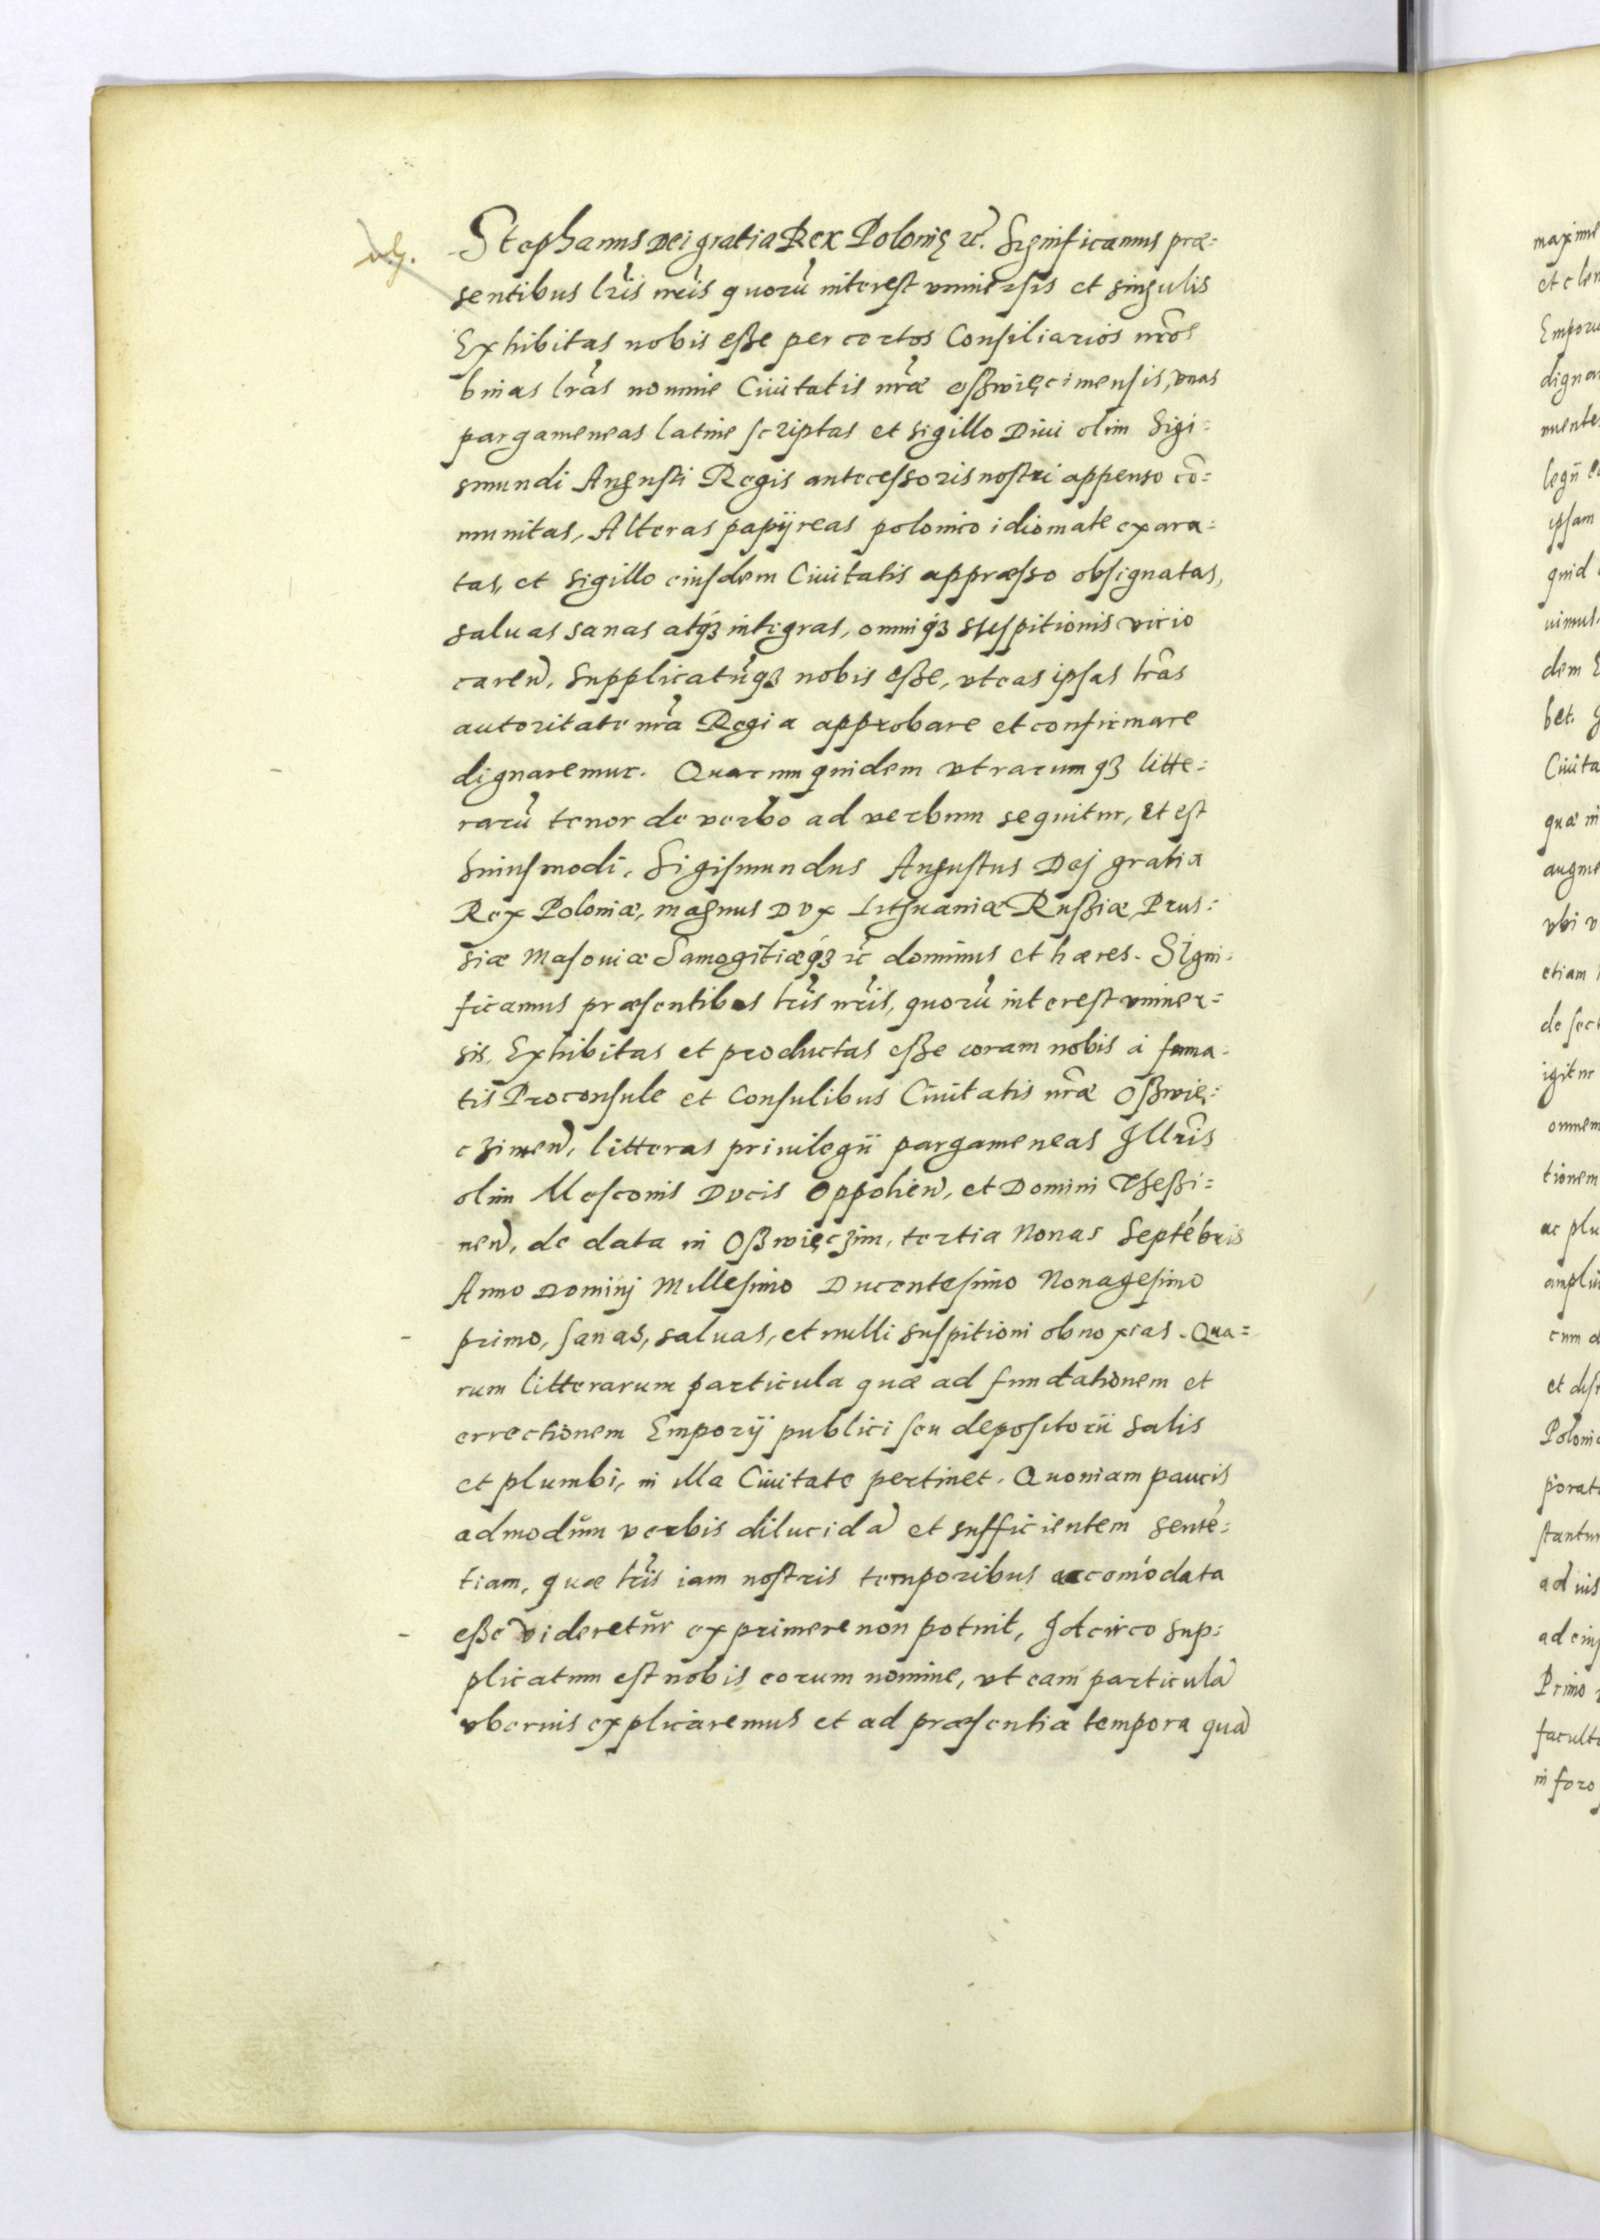 Stephanus Dei gratia Rex Polonię rc̃. Significamus præ=
sentibus lr̃is nr̃is quorũ interest vniuersis et singulis
Exhibitas nobis eße per certos Consiliarios nr̃os
binas lr̃as nomine Ciuitatis nr̃æ oßwięcimensis, vnas
pargameneas latine scriptas et sigillo Diui olim Sigi=
smundi Augusti Regis antecessoris nostri appenso cõ=
munitas, Alteras papÿreas polonico idiomate exara=
tas, et sigillo eiusdem Ciuitatis appræsso obsignatas,
saluas sanas atq́ꝫ integras, omniq́ꝫ suspitionis vicio
careñ. Supplicatũqꝫ nobis eße, vt eas ipsas lr̃as
autoritate nr̃a Regia approbare et confirmare
dignaremur. Quarum quidem vtrarumqꝫ litte=
rarũ tenor de verbo ad verbum sequitur, et est
huiusmodi. Sigismundus Augustus Dej gratia
Rex Poloniæ, magnus Dvx Lithuaniæ Rußiæ, Prus=
siæ Masouiæ Samogitiæq́ꝫ rc̃ dominus et hæres. Signi=
ficamus præsentibus lr̃is nr̃is, quorũ interest vniuer=
sis, Exhibitas et productas eße coram nobis à fama=
tis Proconsule et Consulibus Ciuitatis nr̃æ Oßwię=
czimeñ, litteras priuilegii pargameneas Jllr̃is
olim Mesconis Dvcis Oppolieñ, et Domini Theßi=
neñ, de data in Oßwięczim, tertia Nonas Septẽbris
Anno Dominj Millesimo Ducentesimo Nonagesimo
primo, sanas, saluas, et nulli suspitioni obnoxias. Qua=
rum litterarum particula quæ ad fundationem et
errectionem Emporÿ publici seu depositorii salis
et plumbi, in illa Ciuitate pertinet. Quoniam paucis
admodũm verbis dilucidã et sufficientem sentẽ=
tiam, quæ lr̃is iam nostris temporibus accomõdata
eße videretũr exprimere non potuit, Jdcirco sup=
plicatum est nobis eorum nomine, vt eam particulã
vberius explicaremus et ad præsentia tempora quã
maxime
et clem
Emporu
digna
legii
ipsam
quid
uimus
dem E
bet.
Ciuita
quæ in
augme
vbi v
etiam
de sec
igitur
omnem
tionem
ac plu
ampliu
cum d
et dis
Polonic
porat
stantur
ad ius
ad eius
Primo
faculta
in foro